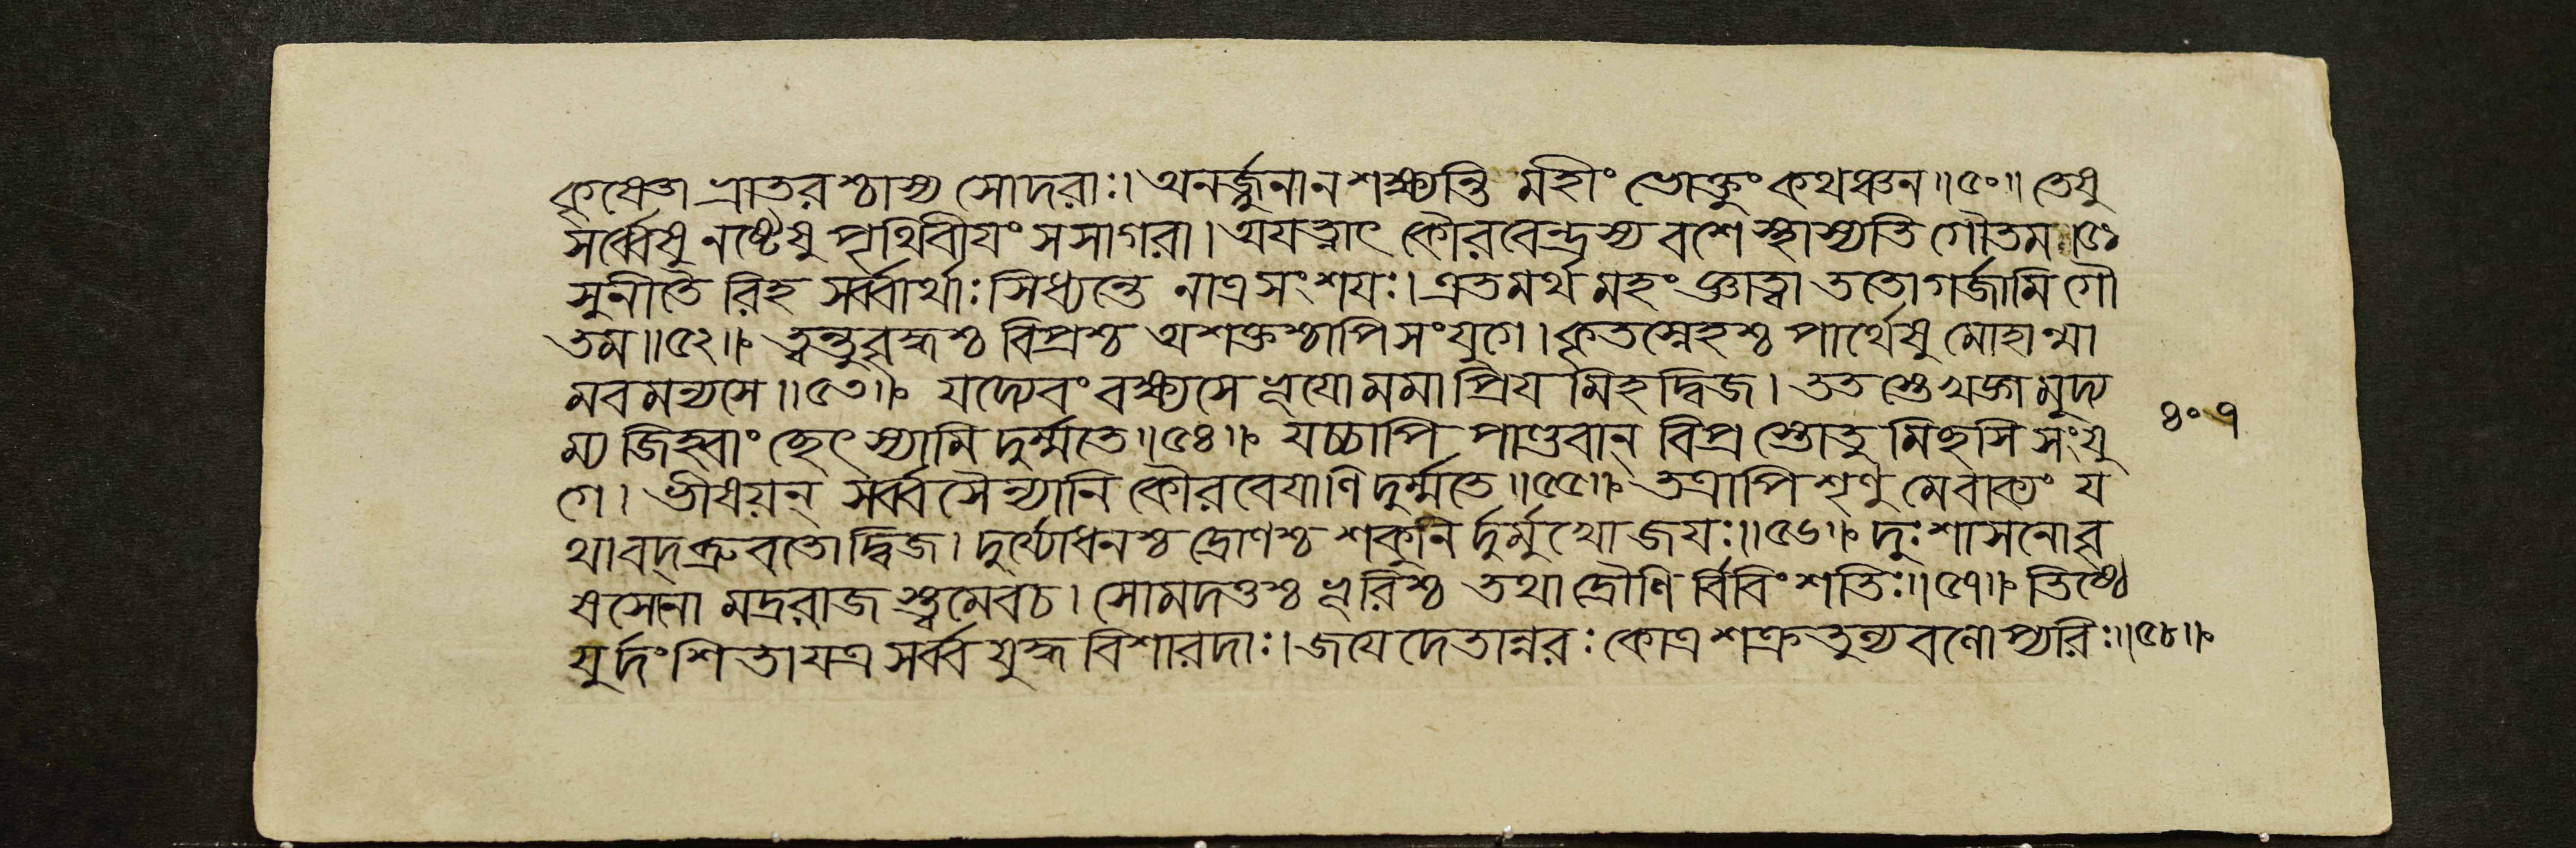 কৃষ্ণেতে ভ্রাতরশ্চাস্য সোদরাঃ। অনর্জ্জুনান শক্ষ্যন্তি মহীং ভোক্তুং কথঞ্চন॥৫০॥ তেষু
সর্ব্বেষু নষ্টেষু পৃথিবীযং সসাগরা। অযত্নাৎ কৌরবেন্দ্রস্য বশে স্থাস্যতি গৌতম॥৫১
সুনীতৈ রিহ সর্ব্বার্থাঃ সিধ্যন্তে নাত্র সংশযঃ। এতমর্থ মহং জ্ঞাত্বা ততো গর্জ্জামি গৌ
তম॥৫২॥ ত্বন্তু বৃদ্ধশ্চ বিপ্রশ্চ অশক্তশ্চাপি সংযুগে। কৃতস্নেহশ্চ পার্থেষু মোহান্মা
মবমন্যসে॥৫৩॥ যদ্যেবং বক্ষ্যসে ভূযো মমাপ্রিয মিহ দ্বিজ। ততস্তে খড্গমুদ্য
ম্য জিহ্বাং ছেৎস্যামি দুর্ম্মতে॥৫৪॥ যচ্চাপি পাণ্ডবান্ বিপ্র স্তোতু মিচ্ছসি সংযু
গে। ভীষয়ন্ সর্ব্বসৈন্যানি কৌরবেযাণি দুর্ম্মতে॥৫৫॥ তত্রাপি শৃণু মে বাক্যং য
থাবদ্ ব্রুবতো দ্বিজ। দুর্য্যোধনশ্চ দ্রোণশ্চ শকুনি র্দুর্মুখো জযঃ॥৫৬॥ দুঃশাসনো বৃ
ষসেনো মদ্ররাজ স্ত্বমেবচ। সোমদত্তশ্চ ভূরিশ্চ তথা দ্রৌণি র্বিবিংশতিঃ॥৫৭॥ তিষ্ঠে
যুর্দংশিতা যত্র সর্ব্ব যুদ্ধ বিশারদাঃ। জযেদেতান্নরঃ কোত্র শক্রতুল্য বলোপ্যরিঃ॥৫৮॥
৪০৭